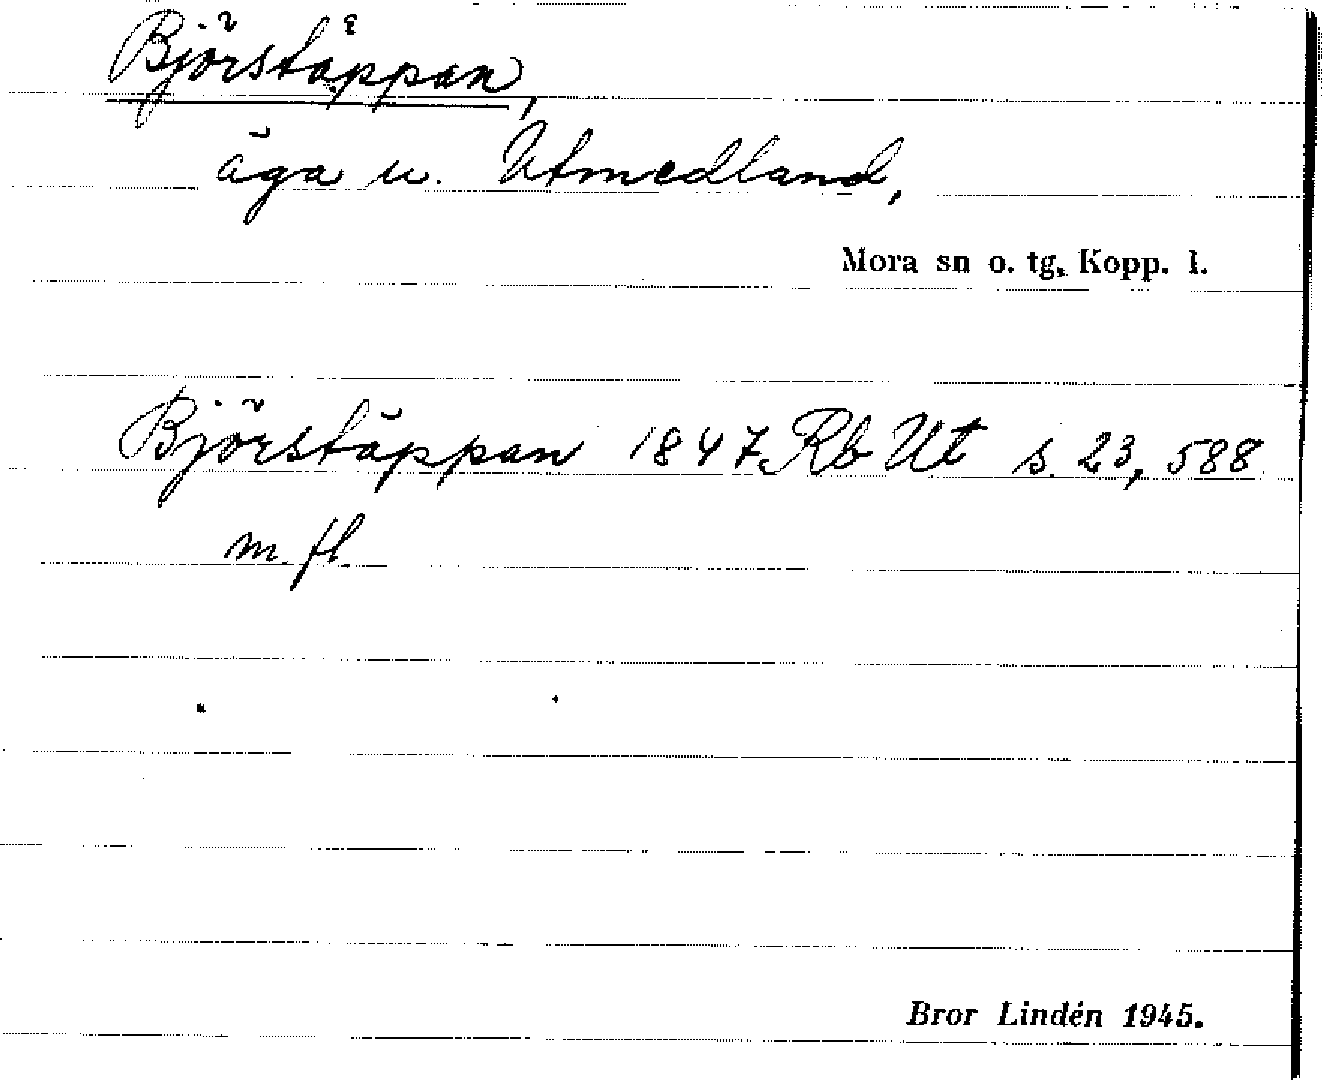 Björstäppan,
äga u. Utmedland,
Mora sn o. tg. Kopp. l.
Björstäppan 1847 Rb Ut s. 23, 588
m. fl.
Bror Lindén 1945.